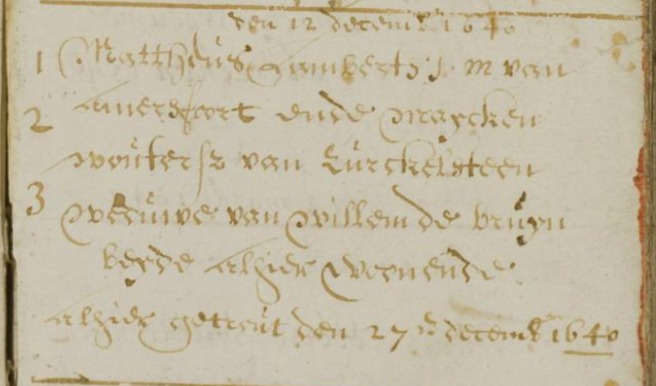 den 12 decemb 1640
1 Mattheus Lambertss J. M van
2 Amersfoort ende Maycken
wouters van Lurckelsteen
3 weeuwe van willem de bruyn
beyde alhier woonende
alhier getrout den 27en decemb 1640